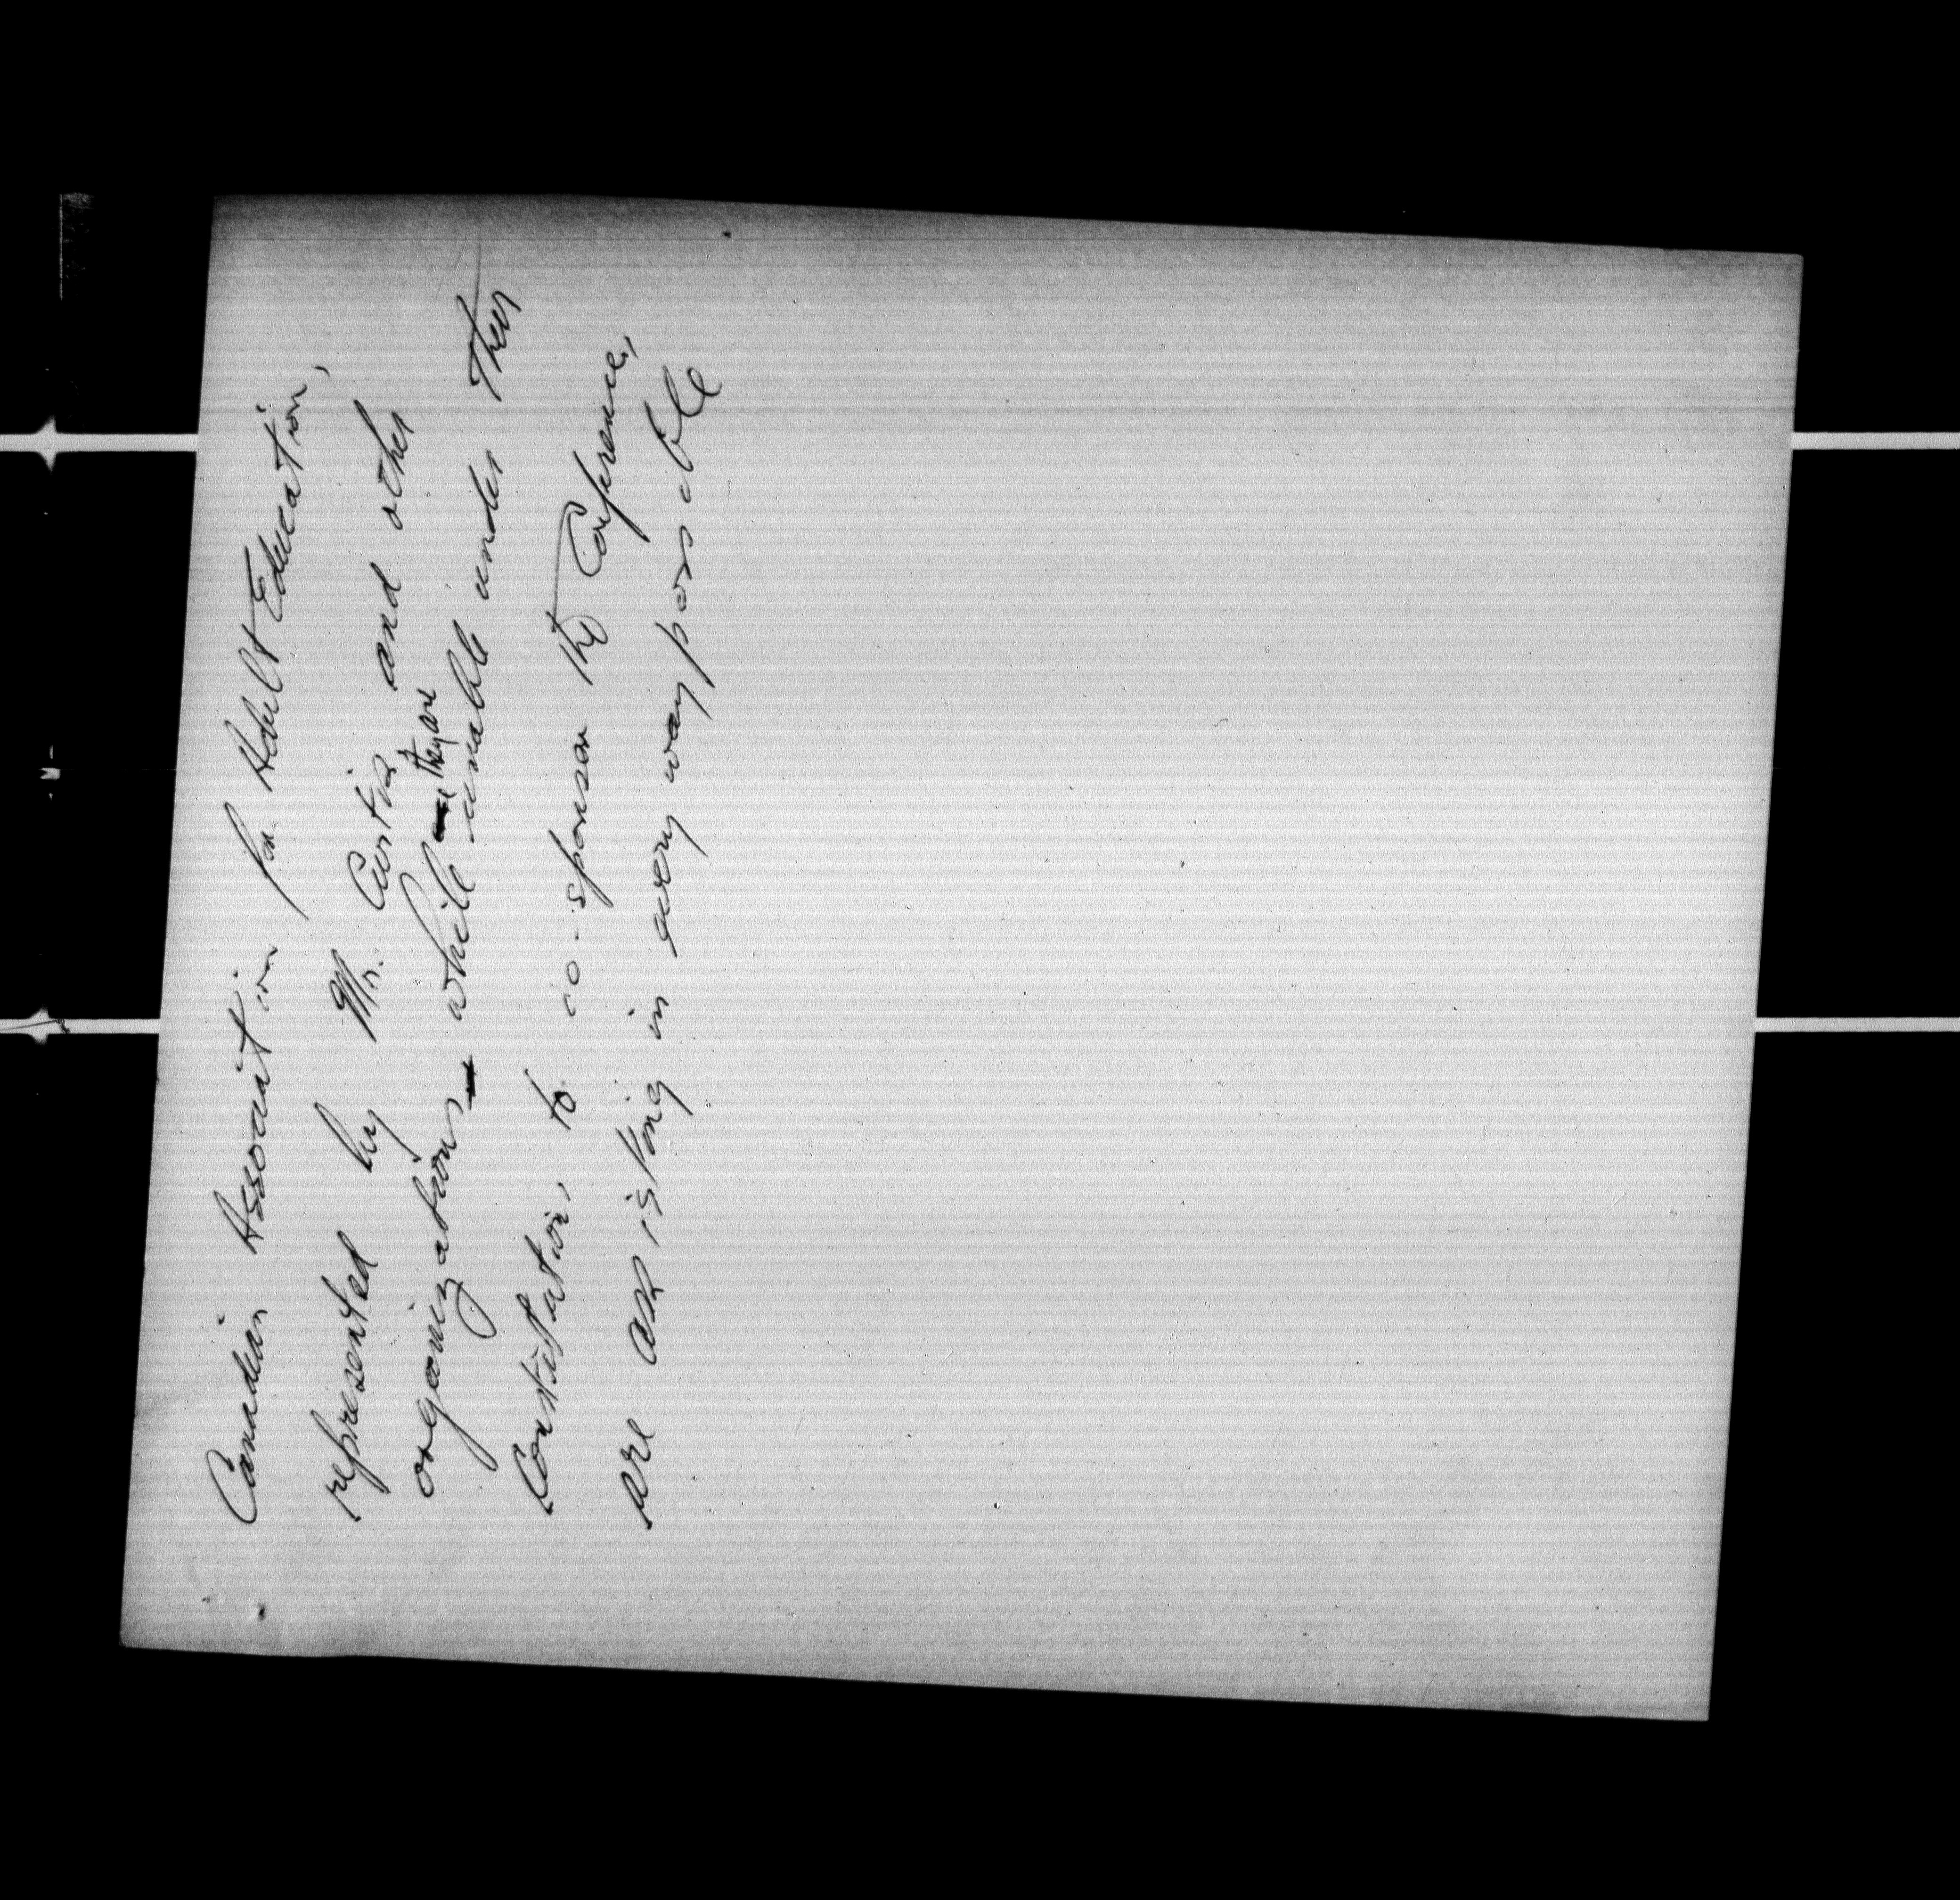 Canadian Association for Adult Education,
represented by Mr. Curtis and other
organizations while they are unable under their
Constitution, to co-sponsor the Conference,
are assisting in every way possible